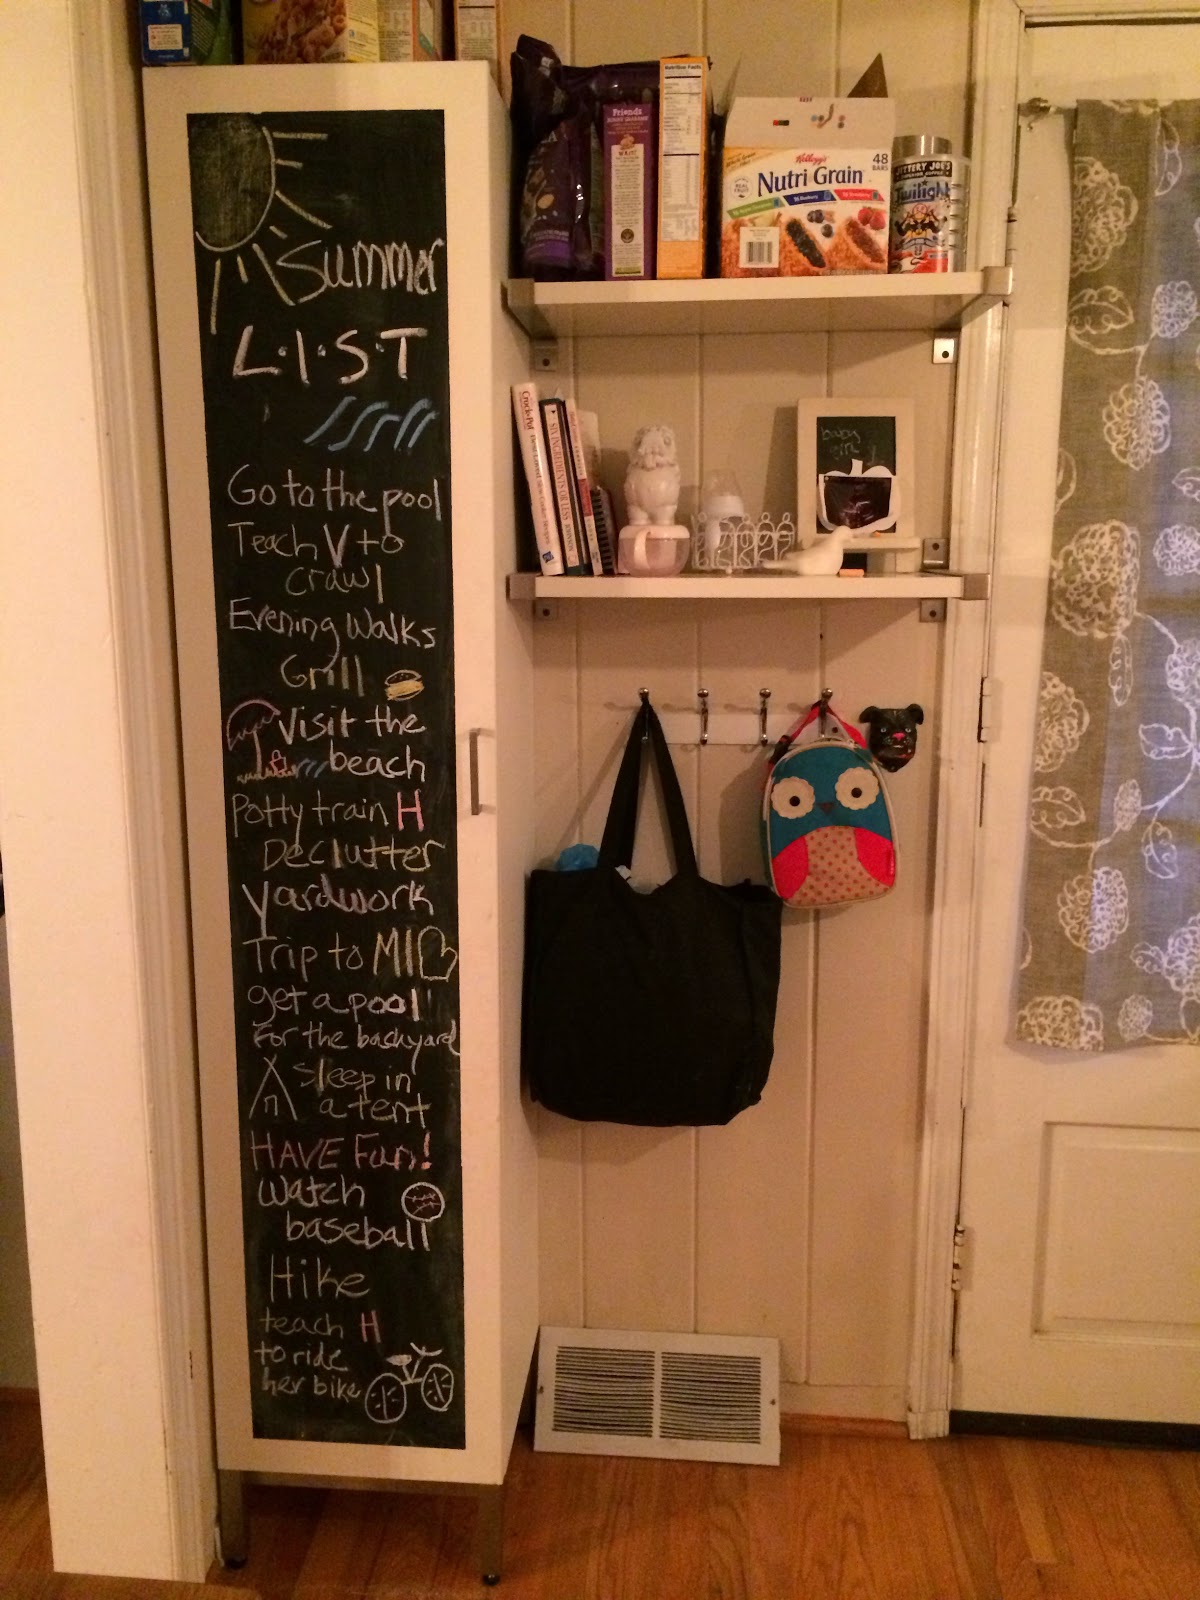 Summer
L·I·S·T
Go to the pool
Teach V to
crawl
Evening Walks
Grill
Visit the
beach
Potty train H
Declutter
Yardwork
Trip to MI
get a pool
For the backyard
sleep in
a tent
HAVE Fun!
Watch
baseball
Hike
teach H
to ride
her bike
Friends
BUNNY GRAHAMS
Nutrition Facts
Kellogg's
Nutri Grain
48
BARS
JITTERY JOE'S
Twilight
Crock-Pot
SIX INGREDIENTS OR LESS
baby
girl